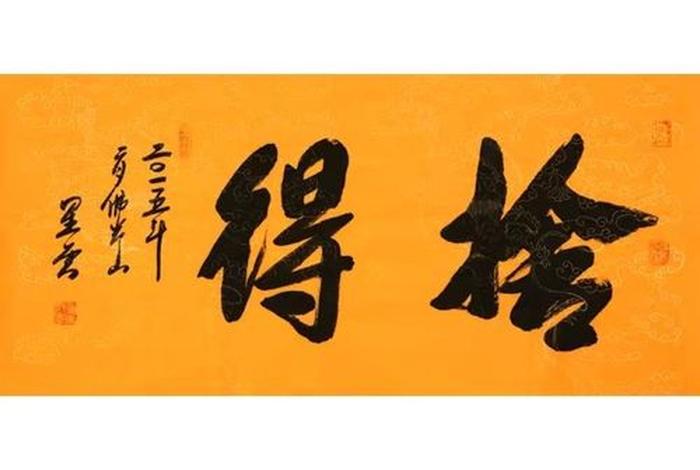 捨得
二〇一五年
佛光山
星雲